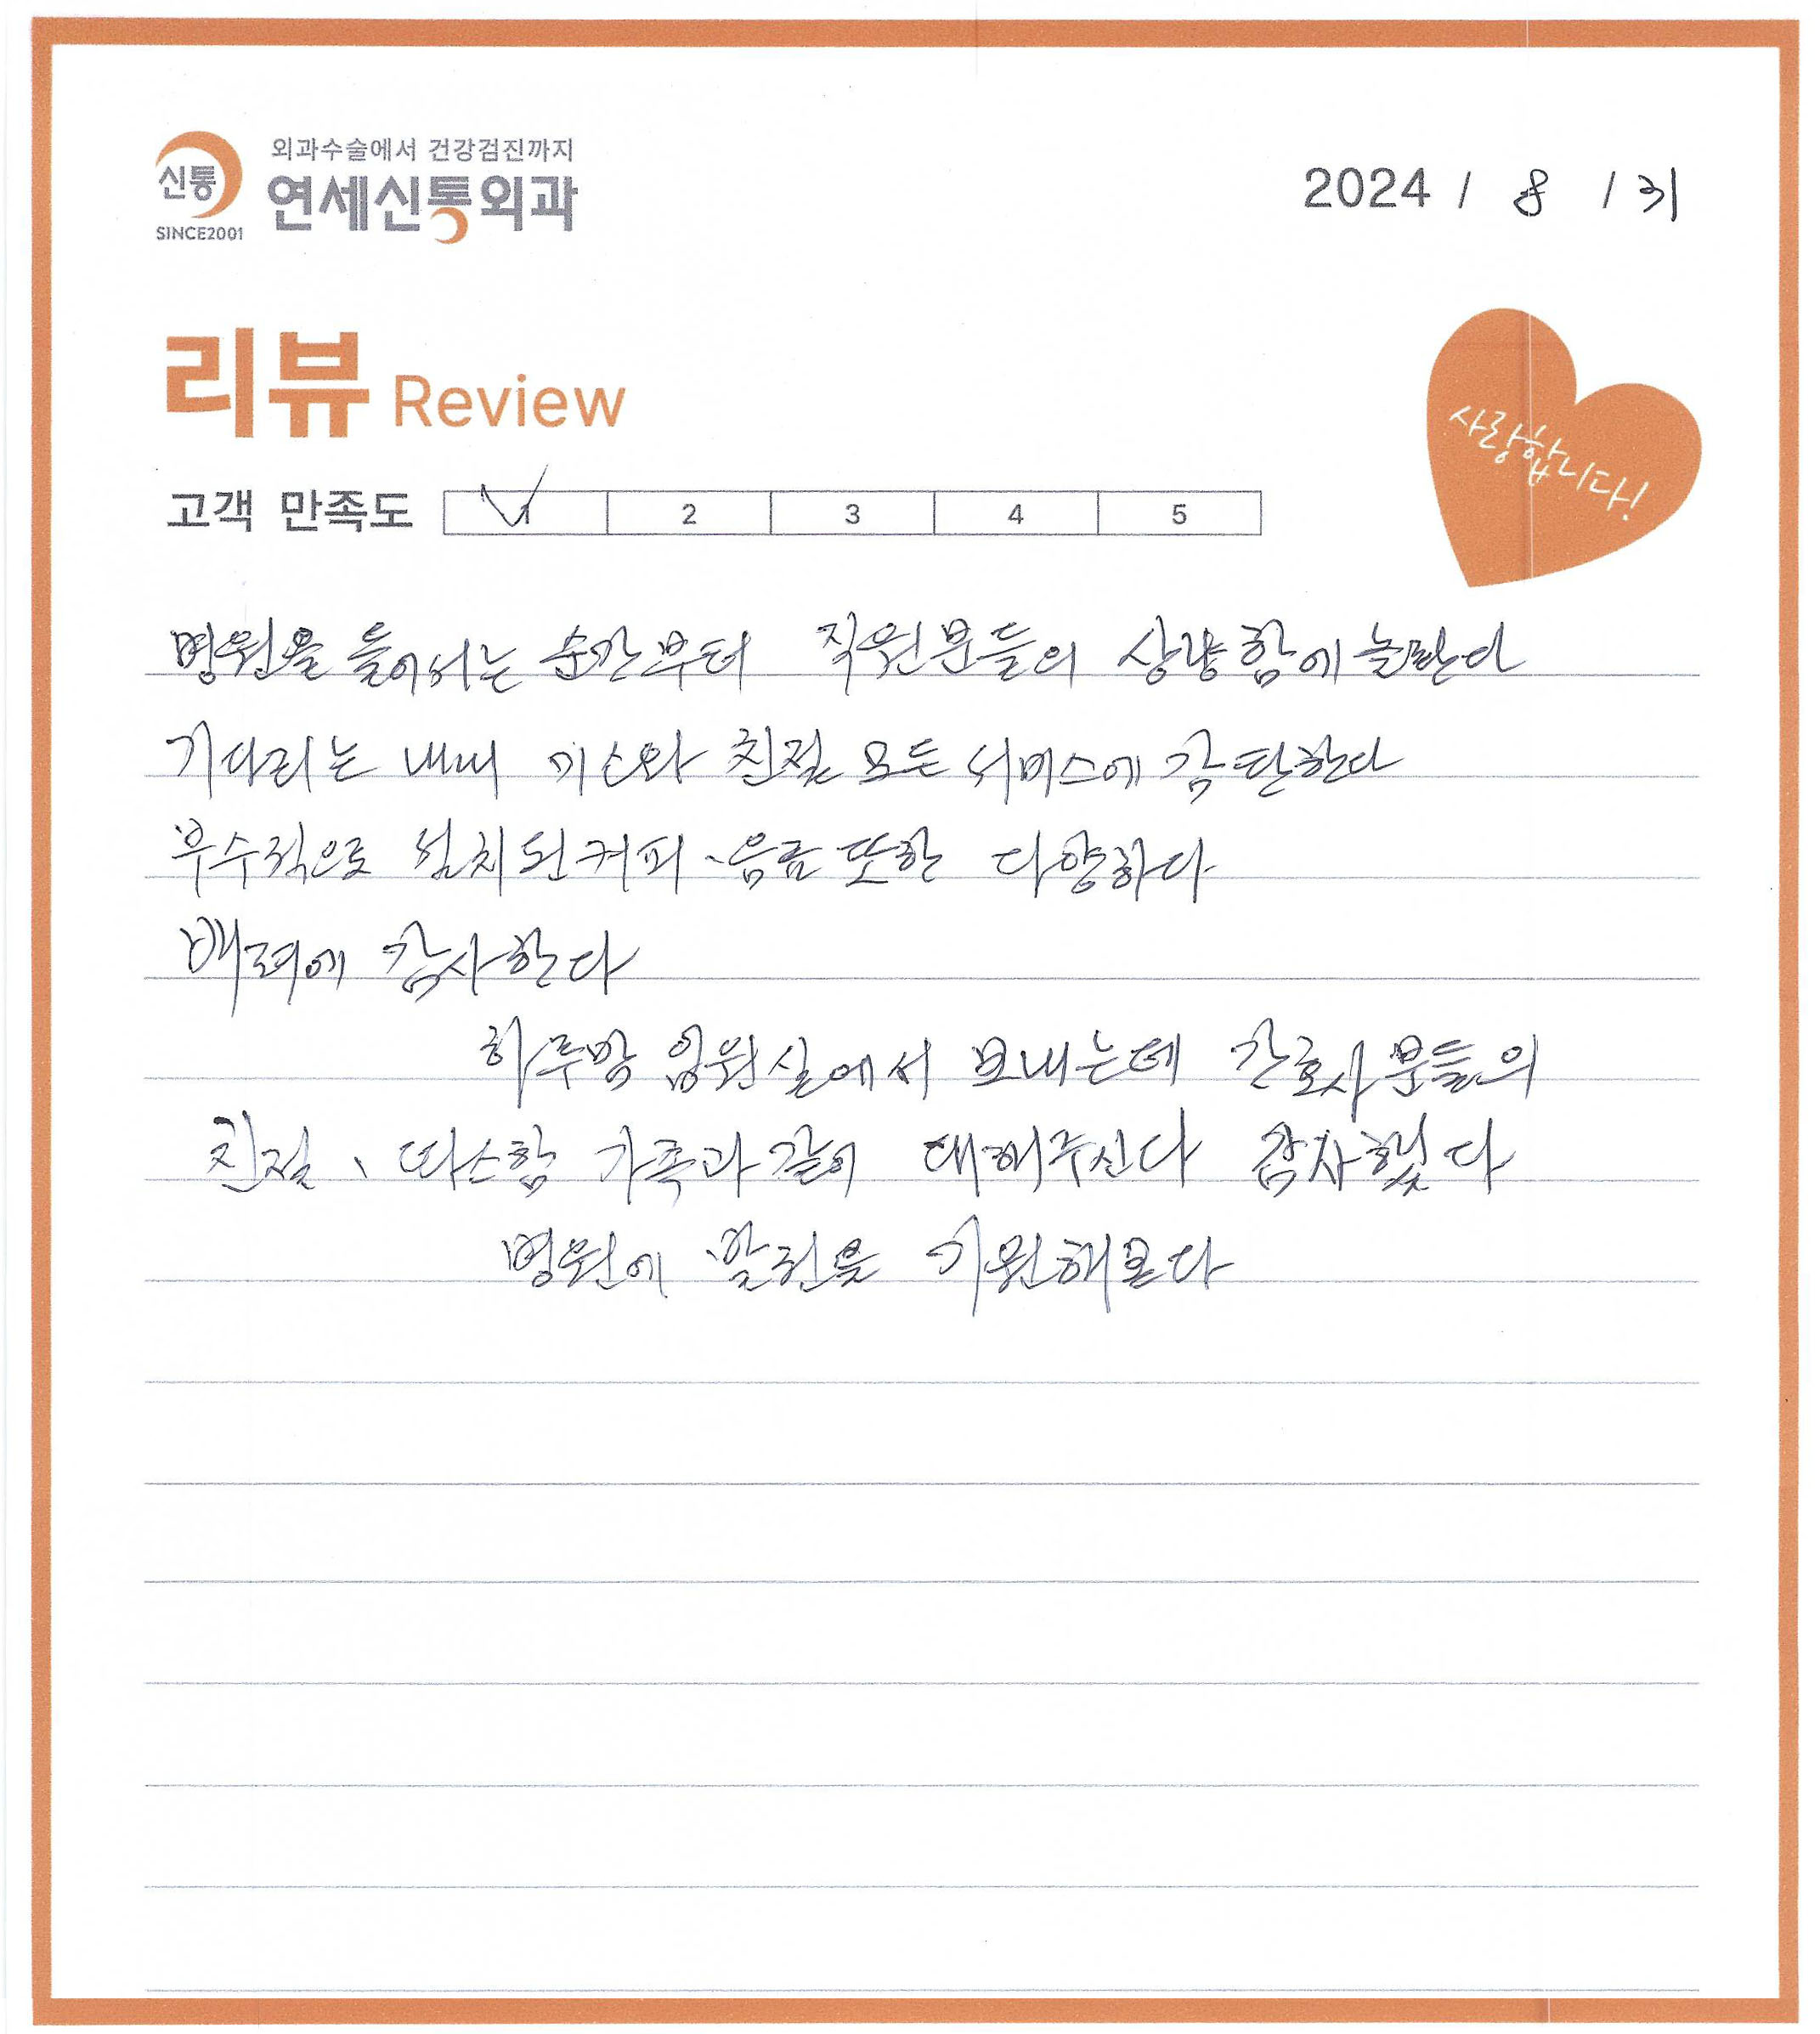 신통
SINCE2001
외과수술에서 건강검진까지
연세신통외과
2024 / 8 / 31
리뷰 Review
사랑합니다!
고객 만족도 1 2 3 4 5
병원을 들어서는 순간부터 직원분들의 상냥함에 놀란다
기다리는 내내 미소와 친절 모든 서비스에 감탄한다
부수적으로 설치된 커피、음료 또한 다양하다
배려에 감사한다
하루밤 입원실에서 보내는데 간호사분들의
친절、따스함 가족과 같이 대해주신다 감사했다
병원에 발전을 기원해본다